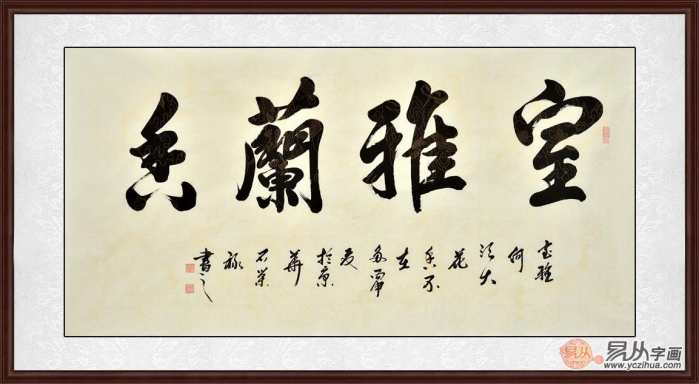 室雅蘭香
室雅
何
須大
花
香不
在
多
夏
於京
華
石榮
祿
書之
易从
易从字画
www.yczihua.com